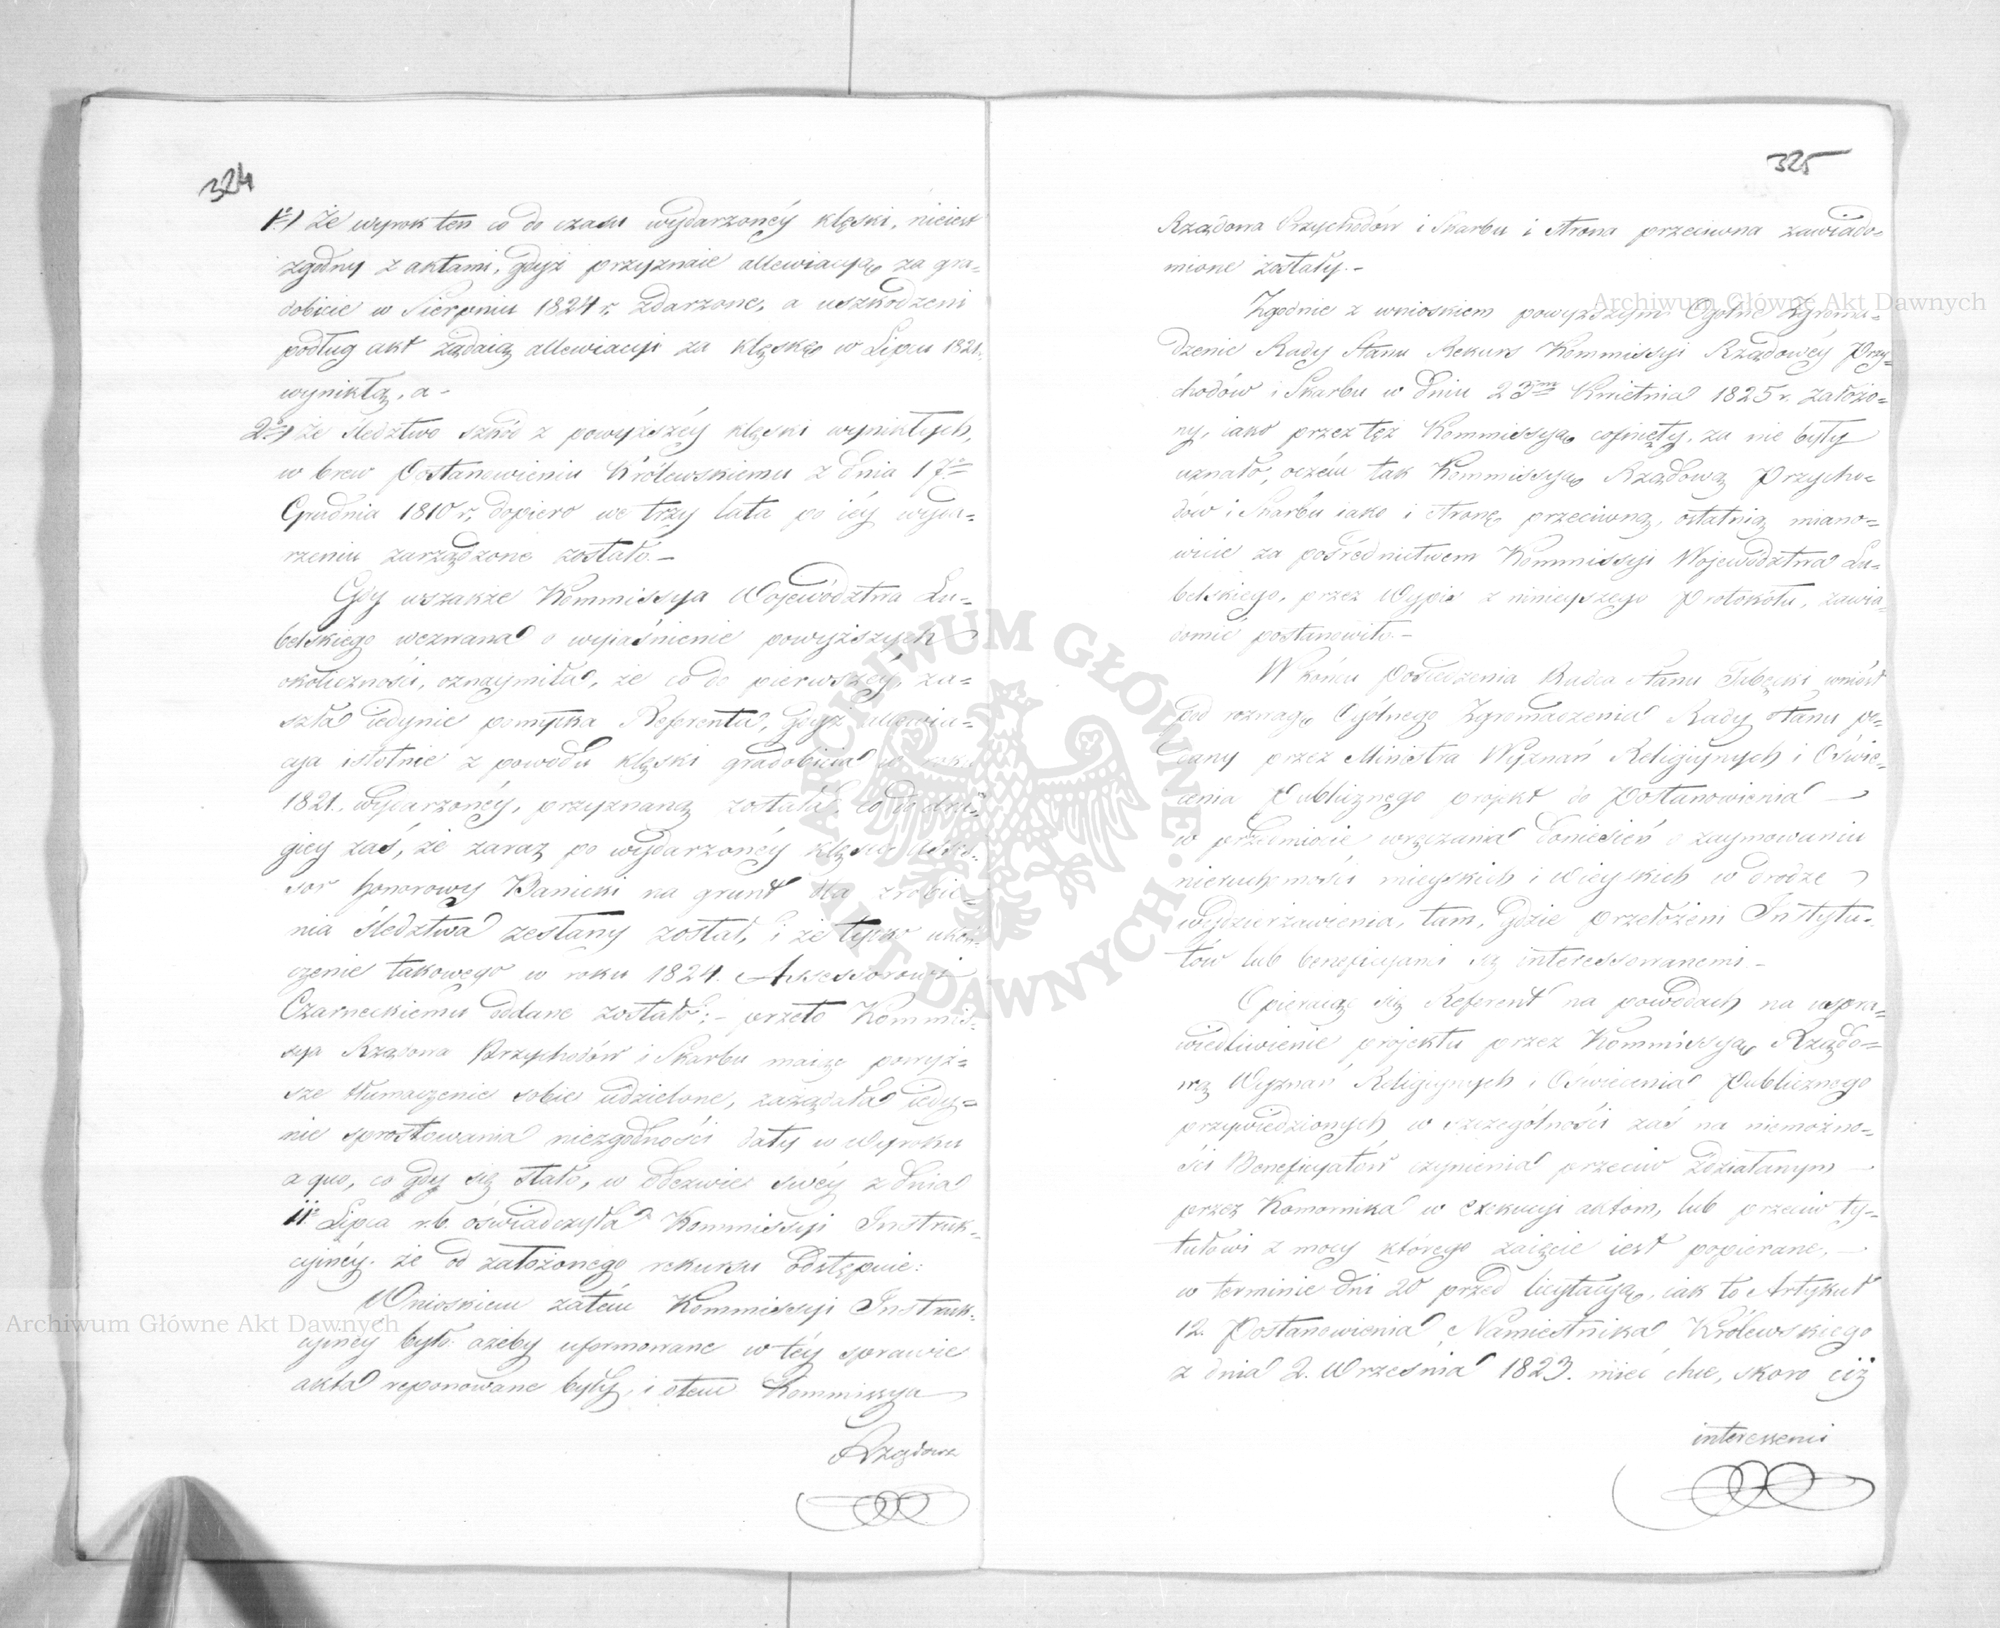 324
1º) Że wyrok ten co do czasu wydarzonéy klęski, nieiest
zgodny z aktami, gdyż przyznaie allewiacyą za gra-
dobicie w Sierpniu 1824 r. zdarzone, a uszkodzeni
podług akt żądaią allewiacyi za klęskę w Lipcu 1821.
wynikłą, a -
2º) że śledztwo szkód z powyższéy klęski wynikłych,
w brew Postanowieniu Królewskiemu z dnia 17º
Grudnia 1810 r. dopiero we trzy lata po iéy wyda-
rzeniu zarządzone zostało. -
Gdy wszakże Kommissya Województwa Lu-
belskiego wezwana o wyiaśnienie powyższych
okoliczności, oznaymiła, że co do pierwszéy, za-
szła iedynie pomyłka Referenta, gdyż allewia-
cya istotnie z powodu klęski gradobicia w roku
1821. wydarzonéy, przyznaną została, co do dru-
giey zaś, że zaraz po wydarzonéy klęsce Asses-
sor honorowy Banicki na grunt dla zrobie-
nia śledztwa zesłany został, i że tylko ukoń-
czenie takowego w roku 1824. Assessorowi
Czarneckiemu oddane zostało; - przeto Kommis-
sya Rządowa Przychodów i Skarbu maiąc powyż-
sze tłumaczenie sobie udzielone, zażądała iedy-
nie sprostowania niezgodności daty w Wyroku
a quo, co gdy się stało, w Odezwie swéy z dnia
11º Lipca r. b. oświadczyła Kommissyi Instruk-
cyinéy, że od założonego rekursu odstępuie:
Wnioskiem zatem Kommissyi Instruk-
cyinéy było: ażeby uformowane w téy sprawie
akta reponowane były, i o tem Kommissya
Rządowa
325
Rządowa Przychodów i Skarbu i strona przeciwna zawiado-
mione zostały. -
Zgodnie z wnioskiem powyższym Ogólne Zgroma-
dzenie Rady Stanu Rekurs Kommissyi Rządowéy Przy-
chodów i Skarbu w dniu 23m Kwietnia 1825 r. założo-
ny, iako przez też Kommissyą cofnięty, za nie były
uznało, oczém tak Kommissyą Rządową Przycho-
dów i Skarbu iako i stronę przeciwną, ostatnią miano-
wicie za pośrednictwem Kommissyi Województwa Lu-
belskiego, przez Wypis z ninieyszego Protokołu, zawia-
domić postanowiło. -
W końcu Posiedzenia Radca Stanu Tubęcki wniósł
pod rozwagę Ogólnego Zgromadzenia Rady Stanu po-
dany przez Ministra Wyznań Religiynych i Oświe-
cenia Publicznego projekt do Postanowienia
w przedmiocie wręczania doniesień o zaymowaniu
nieruchomości mieyskich i wieyskich w drodze
wydzierżawienia, tam, gdzie przełożeni Instytu-
tów lub beneficyami są interessowanemi. -
Opieraiąc się Referent na powodach na uspra-
wiedliwienie projektu przez Kommissyą Rządo-
wą Wyznań Religiynych i Oświecenia Publicznego
przywiedzionych, w szczególności zaś na niemożno-
ści Beneficyatów czynienia przeciw zdziałanym
przez Komornika w exekucyi aktom, lub przeciw ty-
tułowi z mocy którego zaięcie iest popierane,
w terminie dni 20 przed licytacyą, iak to Artykuł
12. Postanowienia Namiestnika Królewskiego
z dnia 2. Września 1823. mieć chce, skoro ciż
interessenci
Archiwum Główne Akt Dawnych
Archiwum Główne Akt Dawnych
ARCHIWUM GŁÓWNE AKT DAWNYCH